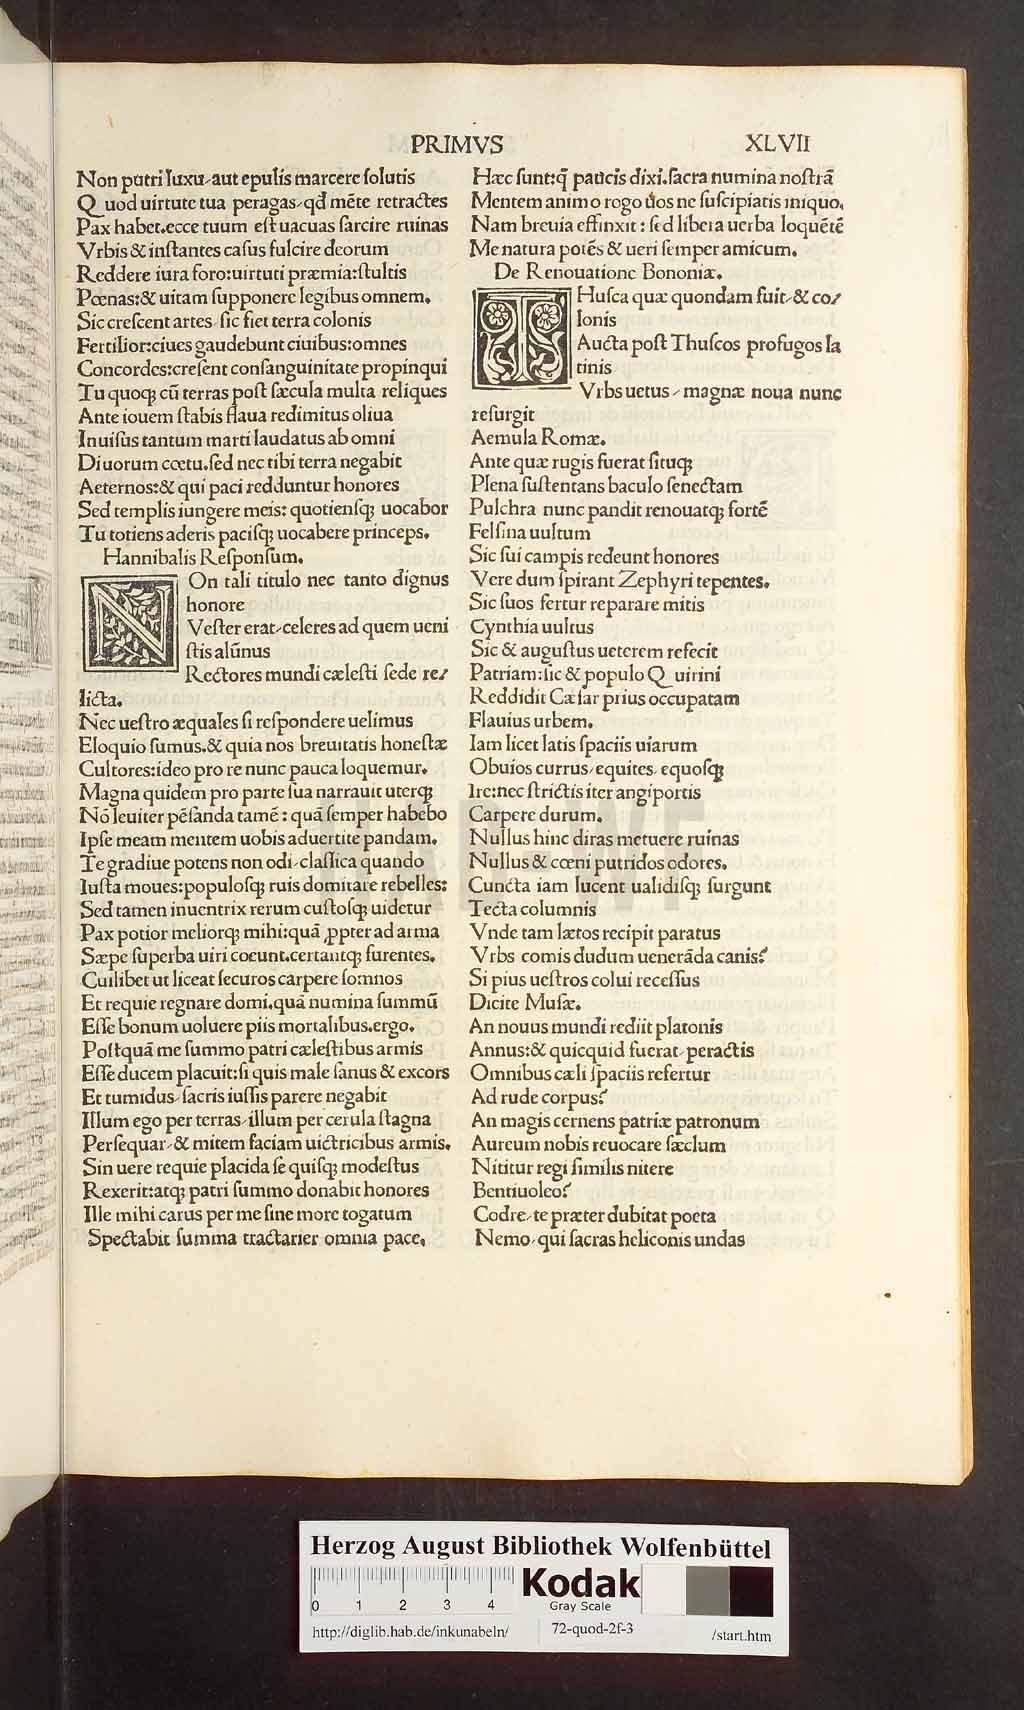 PRIMVS
XLVII
Non putri luxu,aut epulis marcere ſolutis
Q uod uirtute tua peragas,qđ mēte retractes
Pax habet.ecce tuum eſt uacuas ſarcire ruinas
Vrbis & inſtantes caſus fulcire deorum
Reddere iura foro:uirtuti præmia:ſtultis
Pœnas:& uitam ſupponere legibus omnem.
Sic creſcent artes,ſic fiet terra colonis
Fertilior:ciues gaudebunt ciuibus:omnes
Concordes:creſent conſanguinitate propinqui
Tu quoq; cū terras poſt ſæcula multa reliques
Ante iouem ſtabis flaua redimitus oliua
Inuiſus tantum marti laudatus ab omni
Diuorum cœtu.ſed nec tibi terra negabit
Aeternos:& qui paci redduntur honores
Sed templis iungere meis: quotienſq; uocabor
Tu totiens aderis paciſq; uocabere princeps.
Hannibalis Reſponſum.
NOn tali titulo nec tanto dignus
honore
Veſter erat,celeres ad quem ueni
ſtis alūnus
Rectores mundi cæleſti ſede re/
licta.
Nec ueſtro æquales ſi reſpondere uelimus
Eloquio ſumus.& quia nos breuitatis honeſtæ
Cultores:ideo pro re nunc pauca loquemur.
Magna quidem pro parte ſua narrauit uterq;
Nō leuiter pēſanda tamē: quā ſemper habebo
Ipſe meam mentem uobis aduertite pandam.
Te gradiue potens non odi,claſſica quando
Iuſta moues:populoſq; ruis domitare rebelles:
Sed tamen inuentrix rerum cuſtoſq; uidetur
Pax potior meliorq; mihi:quā ꝓpter ad arma
Sæpe ſuperba uiri coeunt.certantq; furentes.
Cuilibet ut liceat ſecuros carpere ſomnos
Et requie regnare domi.quā numina ſummū
Eſſe bonum uoluere piis mortalibus.ergo.
Poſtquā me ſummo patri cæleſtibus armis
Eſſe ducem placuit:ſi quis male ſanus & excors
Et tumidus,ſacris iuſſis parere negabit
Illum ego per terras,illum per cerula ſtagna
Perſequar,& mitem faciam uictricibus armis.
Sin uere requie placida ſe quiſq; modeſtus
Rexerit:atq; patri ſummo donabit honores
Ille mihi carus per me ſine more togatum
Spectabit ſumma tractarier omnia pace.
Hæc ſunt:q̄ paucis dixi.ſacra numina noſtrā
Mentem animo rogo uos ne ſuſcipiatis iniquo.
Nam breuia effinxit: ſed libera uerba loquētē
Me natura potēs & ueri ſemper amicum.
De Renouatione Bononiæ.
THuſca quæ quondam fuit,& co/
lonis
Aucta poſt Thuſcos profugos la
tinis
Vrbs uetus,magnæ noua nunc
reſurgit
Aemula Romæ.
Ante quæ rugis fuerat ſituq;
Plena ſuſtentans baculo ſenectam
Pulchra nunc pandit renouatq; fortē
Felſina uultum
Sic ſui campis redeunt honores
Vere dum ſpirant Zephyri tepentes.
Sic ſuos fertur reparare mitis
Cynthia uultus
Sic & auguſtus ueterem refecit
Patriam:ſic & populo Q uirini
Reddidit Cæſar prius occupatam
Flauius urbem.
Iam licet latis ſpaciis uiarum
Obuios currus,equites,equoſq;
Ire:nec ſtrictis iter angiportis
Carpere durum.
Nullus hinc diras metuere ruinas
Nullus & cœni putridos odores.
Cuncta iam lucent ualidiſq; ſurgunt
Tecta columnis
Vnde tam lætos recipit paratus
Vrbs comis dudum uenerāda canis?
Si pius ueſtros colui receſſus
Dicite Muſæ.
An nouus mundi rediit platonis
Annus:& quicquid fuerat,peractis
Omnibus cæli ſpaciis refertur
Ad rude corpus?
An magis cernens patriæ patronum
Aureum nobis reuocare ſæclum
Nititur regi ſimilis nitere
Bentiuoleo?
Codre,te præter dubitat poeta
Nemo,qui ſacras heliconis undas
HAB-WF
Herzog August Bibliothek Wolfenbüttel
0 1 2 3 4
Kodak
Gray Scale
http://diglib.hab.de/inkunabeln/
72-quod-2f-3
/start.htm